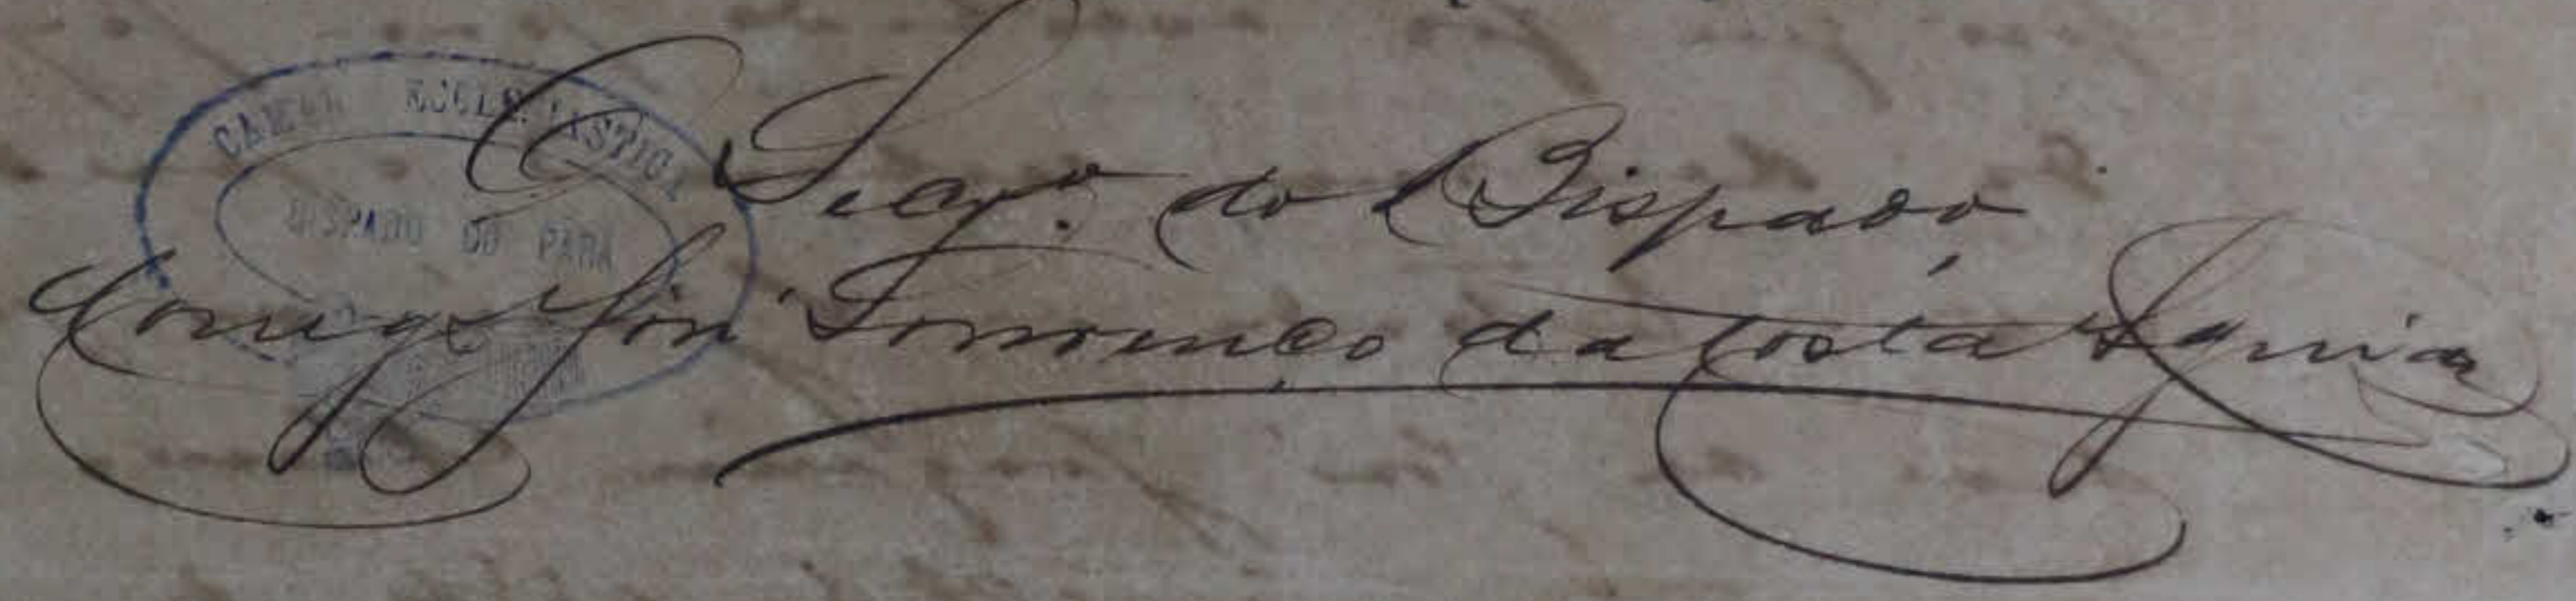 CAMARA ECCLESIASTICA
BISPADO DO PARÁ
O Secr.º do Bispado
Conego José Lourenço da Costa Aguiar